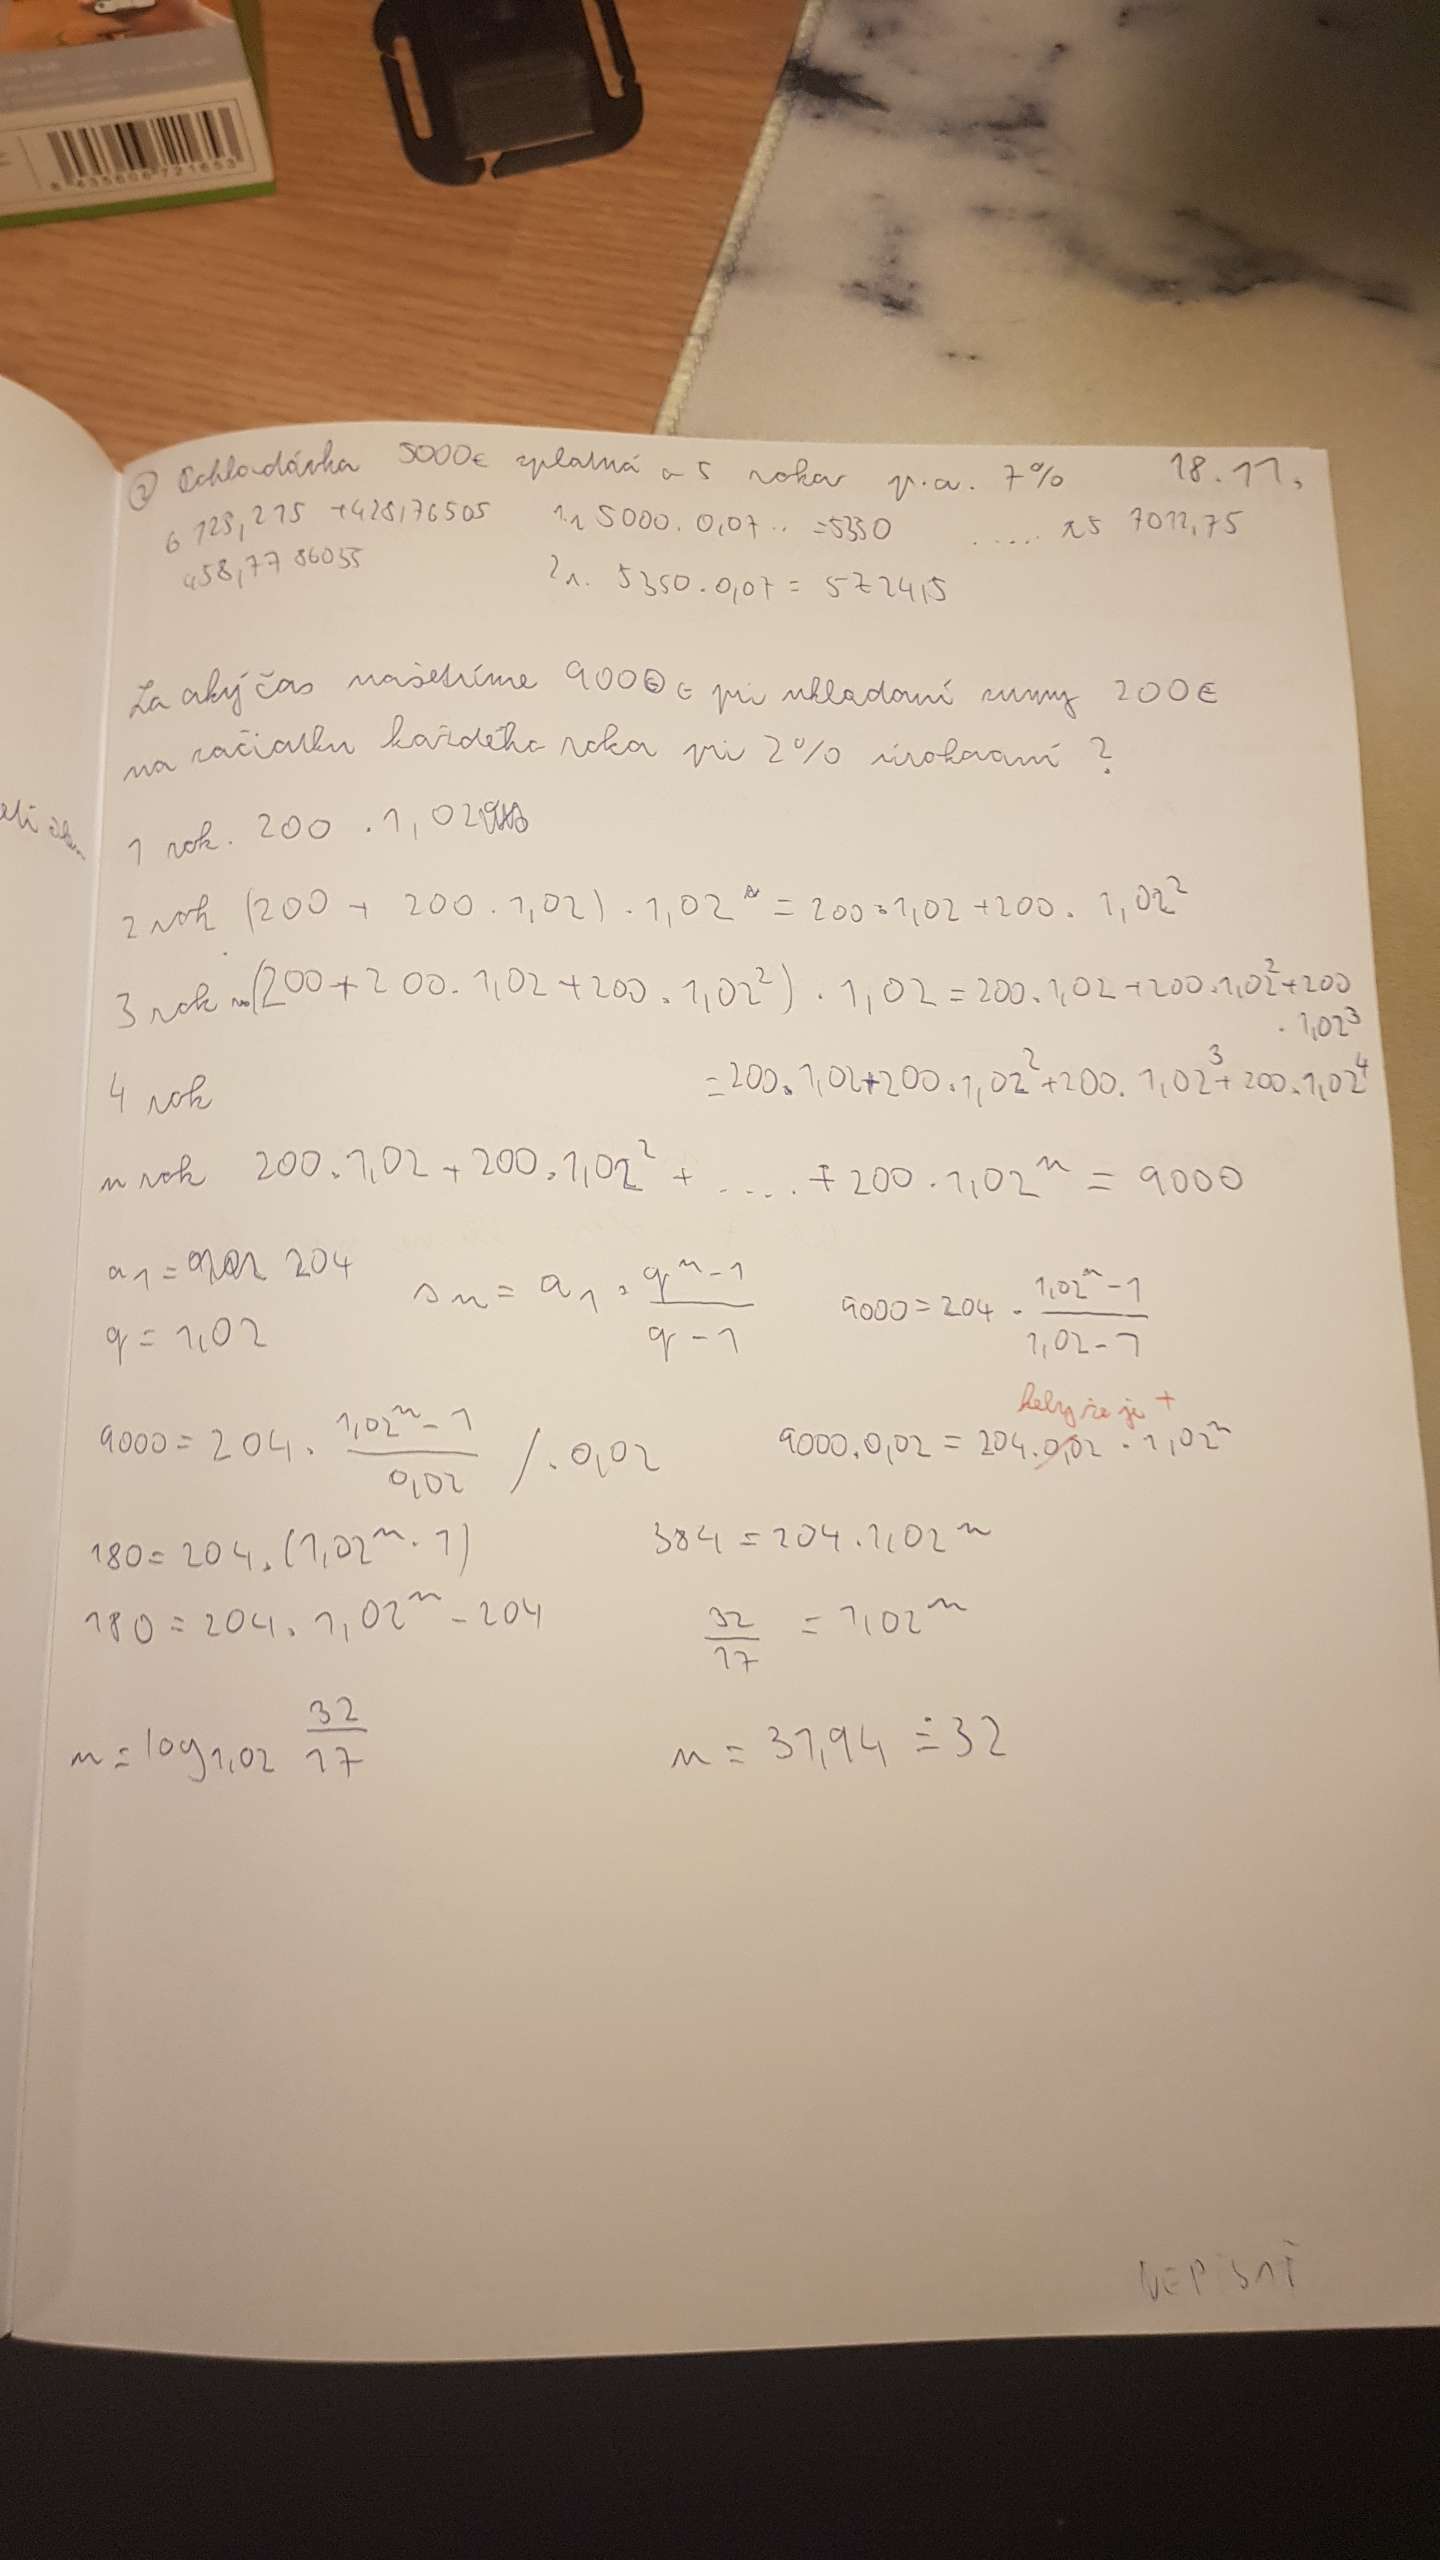 8435606721663
② Vkladávka 5000€ splatná a 5 rokov p.a. 7% 18.11.
6 125,215 +428,76505 1r 5000.0,07.. =5350 ..... r5 7012,75
458,7786055 2r. 5350.0,07= 5724,5
Za aký čas našetríme 9000€ pri vkladaní sumy 200€
na začiatku každého roka pri 2% úrokovaní?
1 rok. 200 .1,02
2 rok (200 + 200.1,02).1,02 = 200.1,02+200. 1,02²
3 rok (200+200.1,02+200.1,02²).1,02=200.1,02+200.1,02²+200
.1,02³
4 rok =200.1,02+200.1,02²+200.1,02³+200.1,02⁴
n rok 200.1,02+200.1,02²+.....+200.1,02ⁿ = 9000
a1= 204 sn= a1 . qⁿ-1/q-1 9000=204 . 1,02ⁿ-1/1,02-1
q= 1,02
že je +
9000=204. 1,02ⁿ-1/0,02 /.0,02 9000.0,02 = 204.0,02 . 1,02ⁿ
180=204.(1,02ⁿ-1) 384=204.1,02ⁿ
180=204.1,02ⁿ-204 32/17 = 1,02ⁿ
n=log1,02 32/17 n= 31,94 ≐32
NEPÍSAŤ